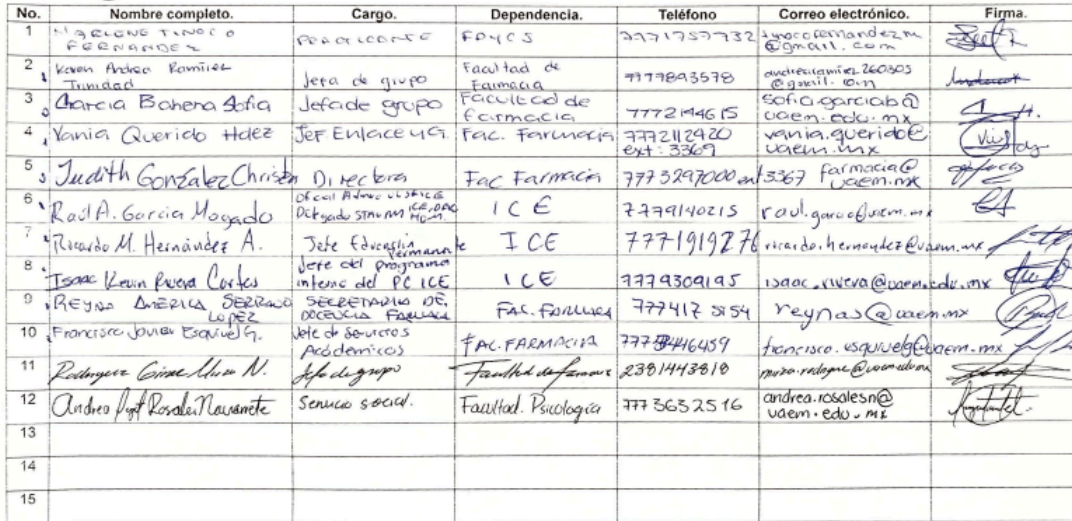 No. Nombre completo. Cargo. Dependencia. Teléfono Correo electrónico. Firma.
1 MARLENE TINOCO FPYCS 7771757732 tinocofernandezm
FERNANDEZ @gmail.com
2 Karen Andrea Ramírez Facultad de
Trinidad Jefa de grupo Farmacia 7777893578 andrearamirez260305
@gmail.com
3 Garcia Bahena Sofia Jefa de grupo Facultad de farmacia 7772144615 sofia.garciab@
uaem.edu.mx
4 Vania Querido Hdez Jef Enlace y G. Fac. Farmacia 7772112920 vania.querido@
ext: 3369 uaem.mx
5 Judith González Christen Directora Fac Farmacia 7773297000 ext 3367 farmacia@
uaem.mx
6 Raúl A. Garcia ICE 7779140215 raul.garcia@uaem.mx
7 Ricardo M. Hernández A. Jefe Educación Permanente ICE 7771919276 ricardo.hernandez@uaem.mx
8 Isaac Kevin Rivera Cortes Jefe del programa
interno del PC ICE ICE 7779309195 isaac.rivera@uaem.edu.mx
9 REYNA AMÉRICA SERRANO SECRETARIA DE
LOPEZ DOCENCIA FARMACIA FAC. FARMACIA 777417 3154 reynas@uaem.mx
10 Francisco Javier Esquivel G. Jefe de Servicios
Académicos FAC. FARMACIA francisco.esquivelg@uaem.mx
11 N. Jefe de grupo Facultad de 2381443818
12 Andrea Rosales Navarrete Servicio social. Facultad. Psicología 777 3632516 andrea.rosalesn@
uaem.edu.mx
13
14
15